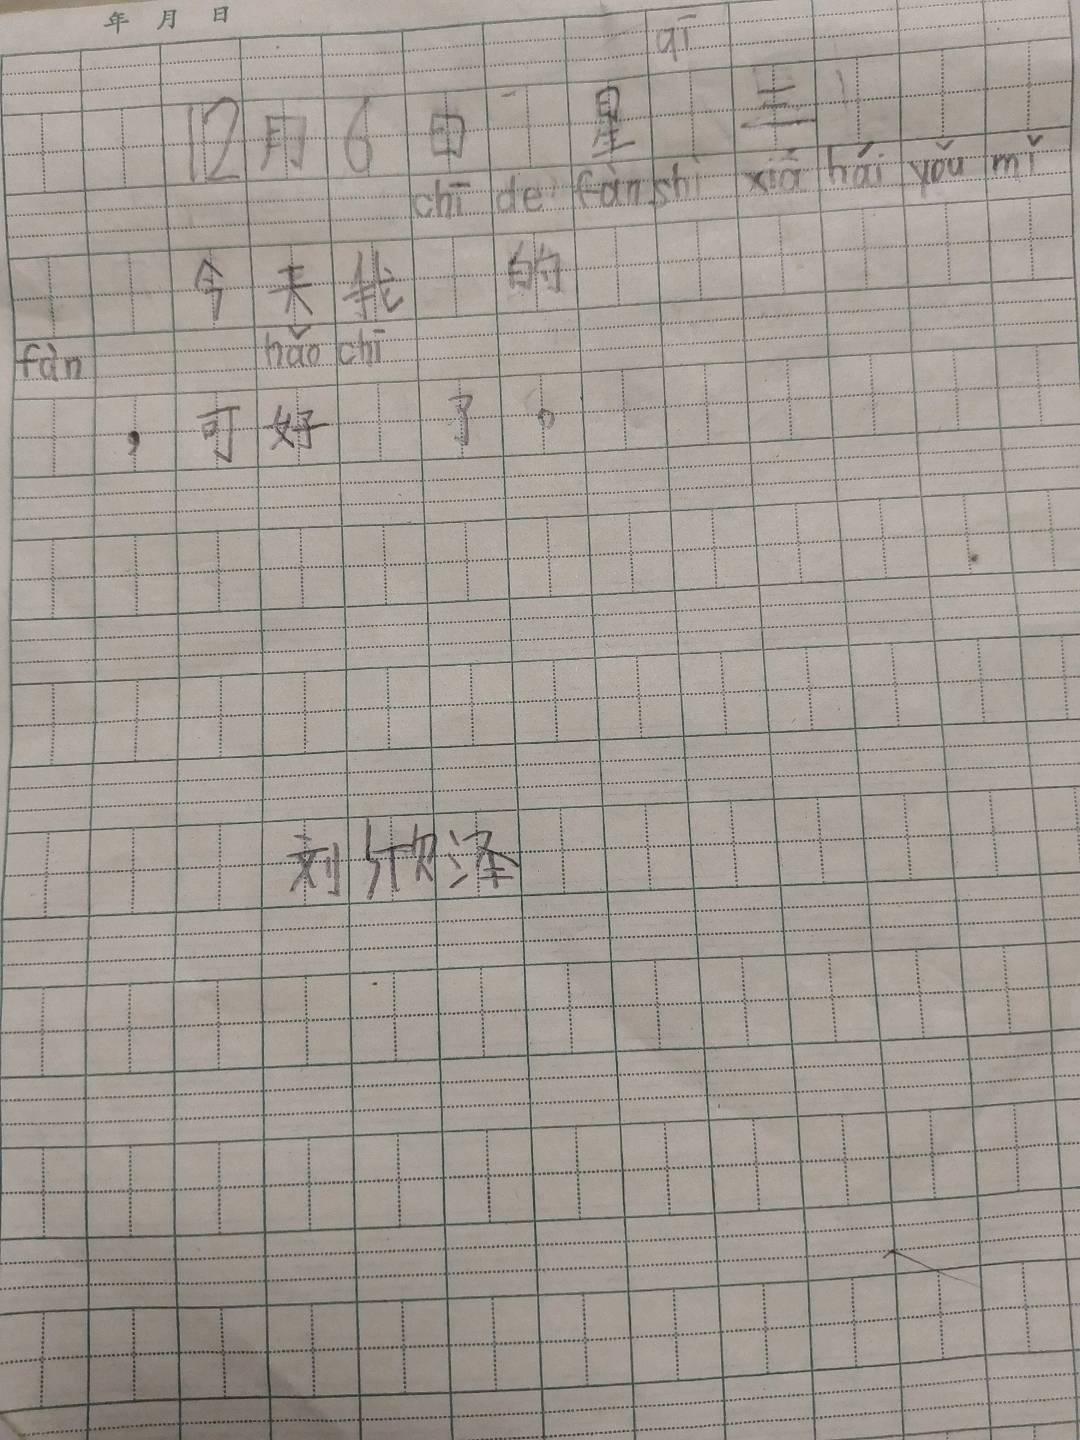 年 月 日
qī
12月6日 星 三
chī de fàn shì xiā hái yǒu mǐ
今天我 的
fàn hǎo chī
，可好 了。
刘欣泽